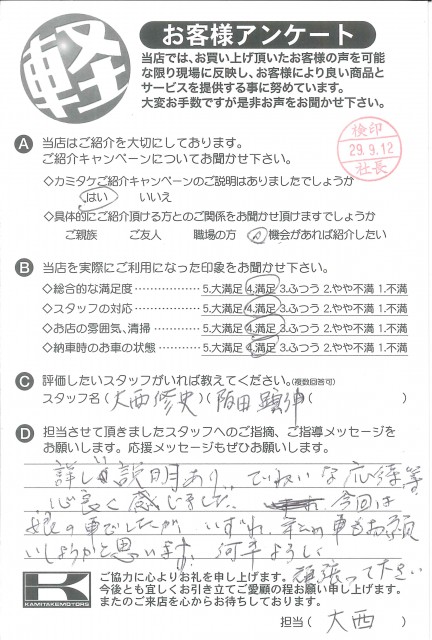 軽
お客様アンケート
当店では、お買い上げ頂いたお客様の声を可能
な限り現場に反映し、お客様により良い商品と
サービスを提供する事に努めています。
大変お手数ですが是非お声をお聞かせ下さい。
検印
29.9.12
社長
A 当店はご紹介を大切にしております。
ご紹介キャンペーンについてお聞かせ下さい。
◇カミタケご紹介キャンペーンのご説明はありましたでしょうか
はい いいえ
◇具体的にご紹介頂ける方とのご関係をお聞かせ頂けますでしょうか
ご親族 ご友人 職場の方 機会があれば紹介したい
B 当店を実際にご利用になった印象をお聞かせ下さい。
◇総合的な満足度 ・・・・・・・・・・ 5.大満足 4.満足 3.ふつう 2.やや不満 1.不満
◇スタッフの対応 ・・・・・・・・・・ 5.大満足 4.満足 3.ふつう 2.やや不満 1.不満
◇お店の雰囲気、清掃 ・・・・・・ 5.大満足 4.満足 3.ふつう 2.やや不満 1.不満
◇納車時のお車の状態 ・・・・・・ 5.大満足 4.満足 3.ふつう 2.やや不満 1.不満
C 評価したいスタッフがいれば教えてください。(複数回答可)
スタッフ名(大西修史)(阪田 顕伸)( )
D 担当させて頂きましたスタッフへのご指摘、ご指導メッセージを
お願いします。応援メッセージもぜひお願いします。
詳しい説明あり、ていねいな応待等
心良く感じました。 今回は
娘の車でしたが いずれ 車もお願
いしようかと思います。何卒よろしく
頑張って下さい
K
KAMITAKEMOTORS
ご協力に心よりお礼を申し上げます。
今後とも宜しくお引き立てご愛顧の程お願い申し上げます。
またのご来店を心からお待ちしております。
担当( 大西 )